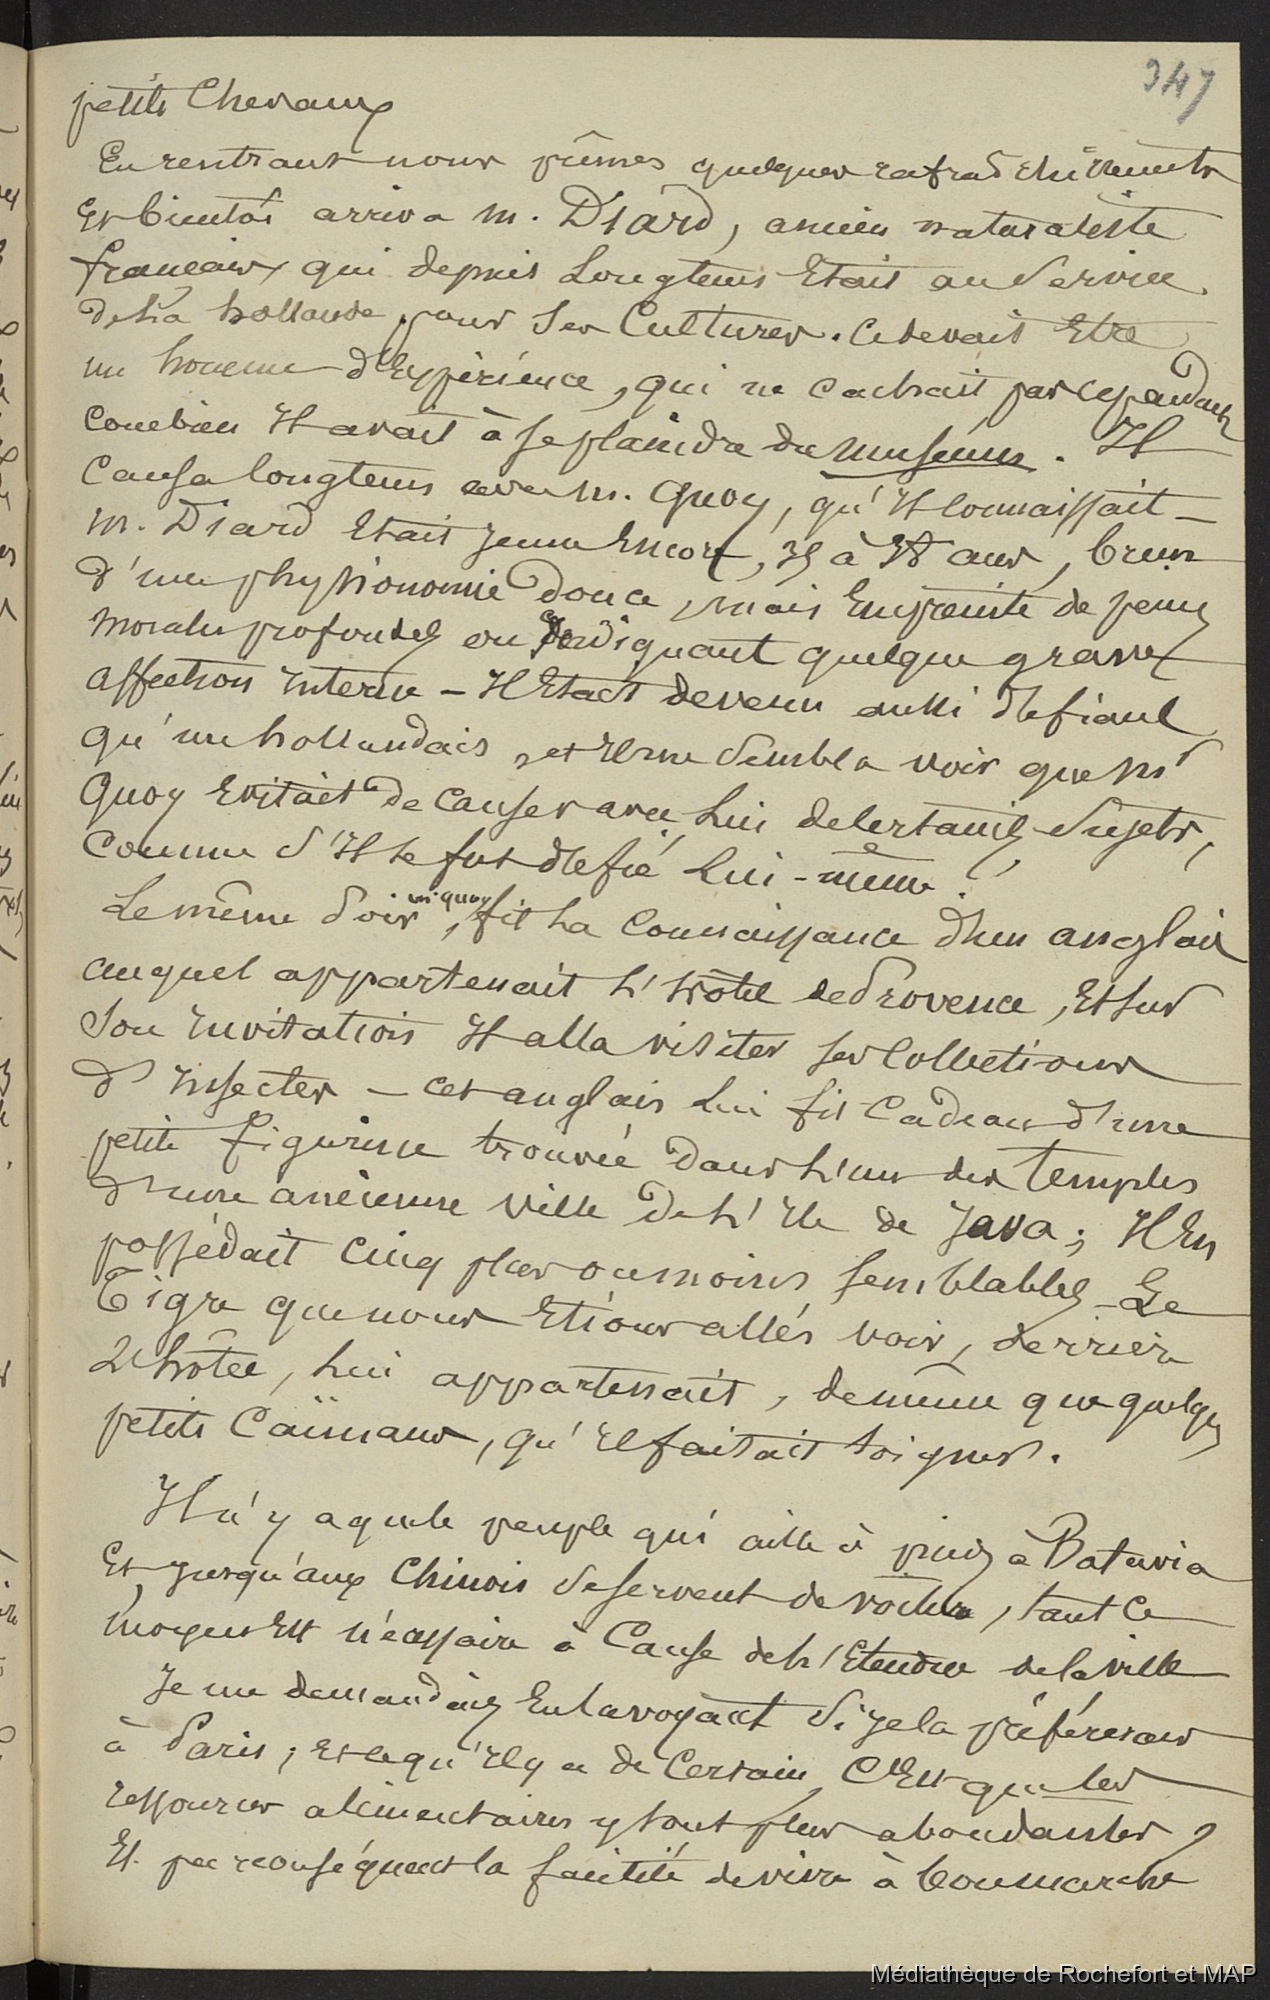 347
petits Chevaux
En rentrant nous prîmes quelques rafraichissements
Et bientôt arriva m. Diard, ancien naturaliste
français, qui depuis Longtems Etait au Service
de la hollande, pour Ses Cultures. Ce devait Etre
un homme d'Expérience, qui ne cachait pas cependant
combien Il avait à se plaindre du museum. Il
Causa longtems avec m. Quoy, qu'Il connaissait_
m. Diard Etait jeune Encore, à ans, brun
d'une physionomie douce, mais Empreinte de peines
Morales profondes ou indiquant quelque grave
affection Interne – Il Etait devenu aussi défiant
qu'un hollandais, et Il me Sembla voir que m.
Quoy Evitait de causer avec Lui de certains Sujets,
Comme S'Il se fut défié Lui-même.
Le même Soir, m. quoy fit La connaissance d'un anglais
auquel appartenait L'hôtel de Provence, Et sur
Son Invitation Il alla visiter ses Collections
d'Insectes – cet anglais Lui fit Cadeau d'une
petite figurine trouvée dans L'un des Temples
d'une ancienne ville de L'Ile de Java; Il En
possédait cinq plus ou moins semblables – Le
Tigre que nous Etions allés voir, derrière
L'hôtel, Lui appartenait, de même que quelques
petits Caïmans, qu'Il faisait soigner.
Il n'y a que le peuple qui aille à pied à Batavia
Et jusqu'aux Chinois Se servent de voiture, tant ce
moyen Est nécessaire à Cause de L'Etendue de la ville
Je me demandais En la voyant Si je la préférerais
à Paris; Et ce qu'Il y a de Certain, C'Est que les
ressources alimentaires y sont plus abondantes,
Et par conséquent la facilité de vivre à bon marché
Médiathèque de Rochefort et MAP